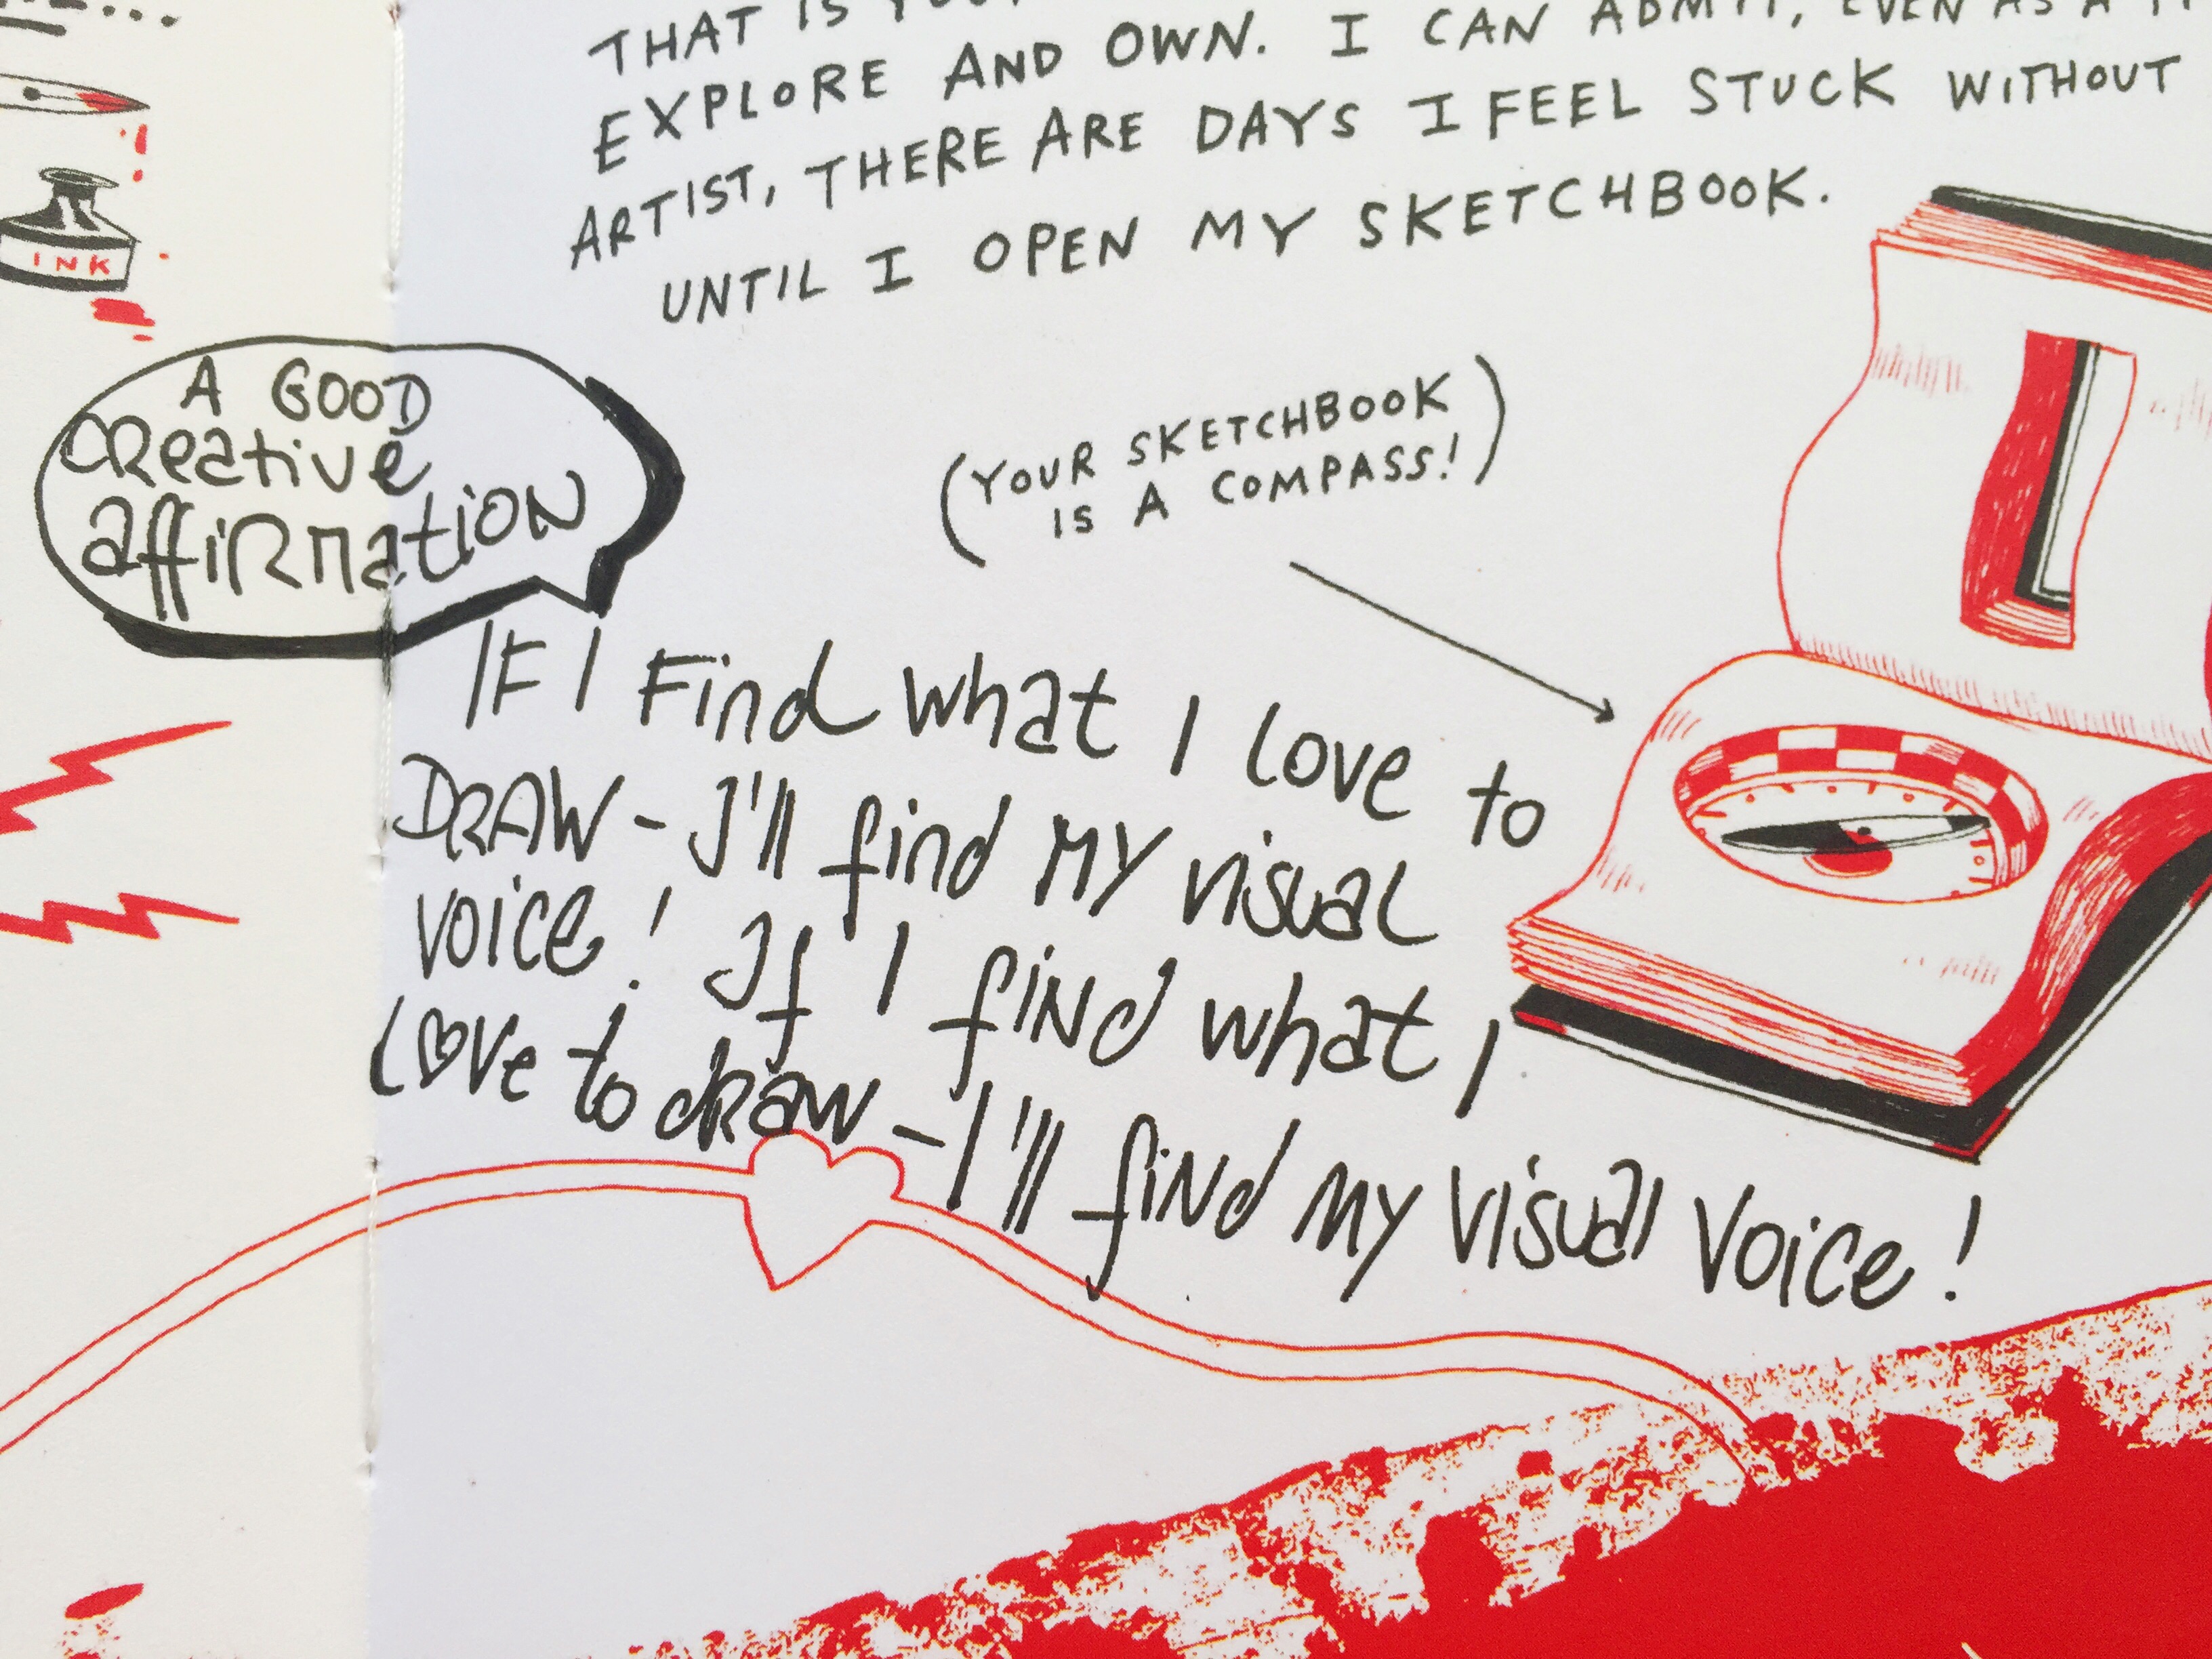 THAT IS
EXPLORE AND OWN. I CAN ADMIT, EVEN AS A
ARTIST, THERE ARE DAYS I FEEL STUCK WITHOUT
UNTIL I OPEN MY SKETCHBOOK.
INK
A GOOD
CReative
affiRmatioN
(YOUR SKETCHBOOK
IS A COMPASS!)
IF I Find what I love to
DRAW - I'll find MY visual
voice! If I fiNd what I
LOVe to dRaw - I'll fiNd MY visual Voice!